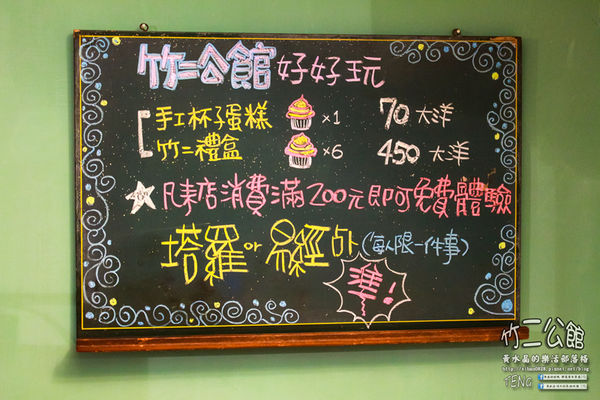 竹二公館 好好玩
手工杯子蛋糕 x1 70 大洋
竹二禮盒 x6 450 大洋
凡来店消費滿200元即可免費體驗
塔羅 or 易經卦 (每人限一件事)
準!
竹二公館
黃水晶的樂活部落格
TENG